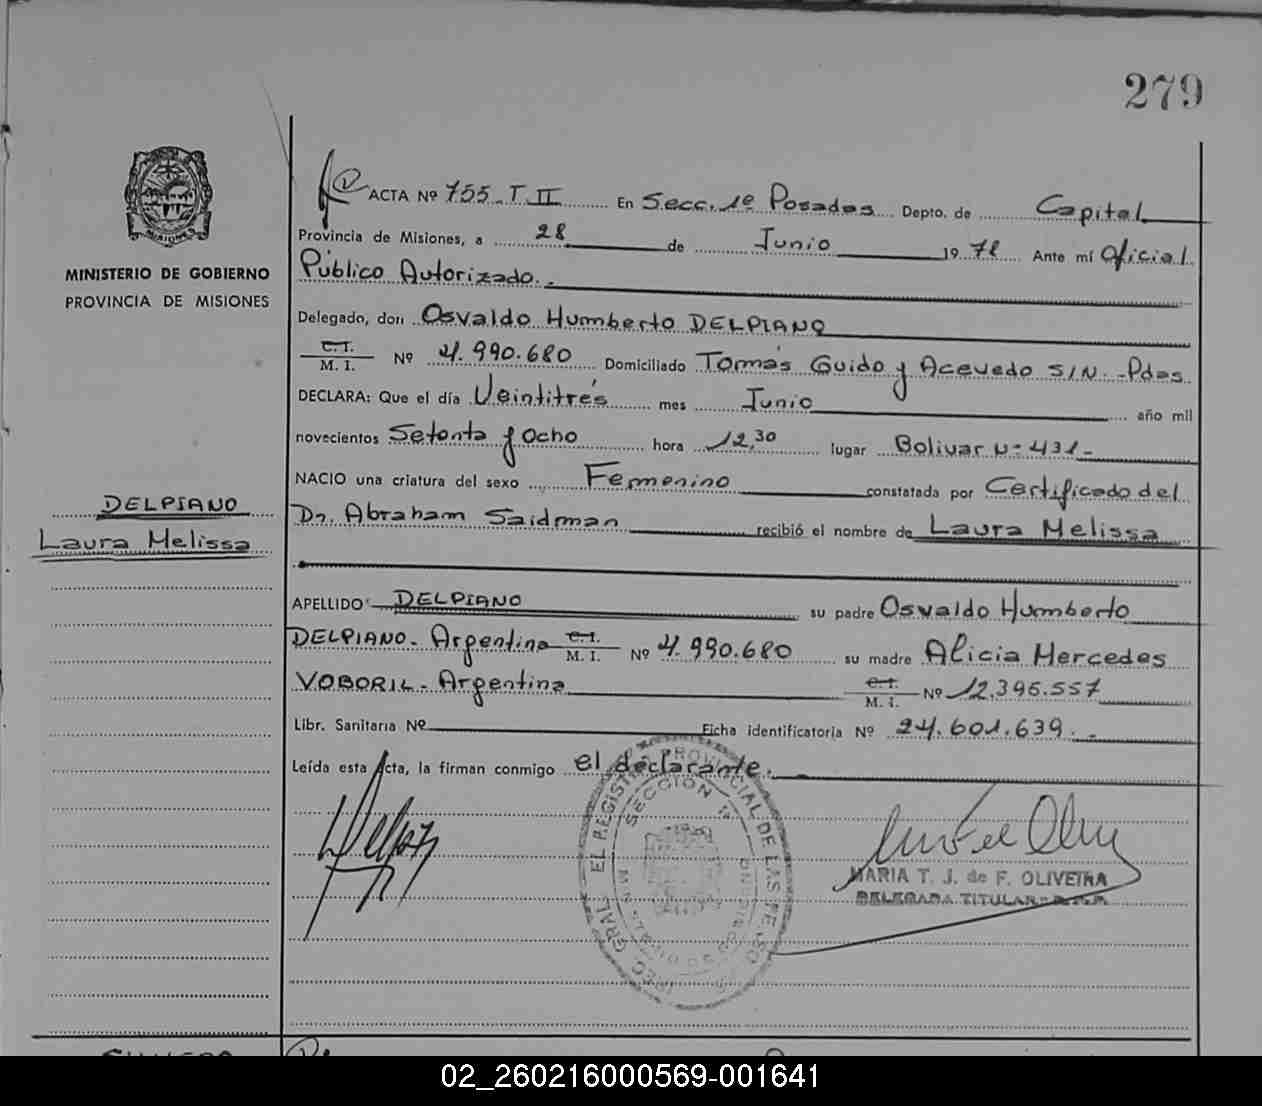 279
ACTA Nº 755 - T. II En Secc. 1º Posadas Depto. de Capital
Provincia de Misiones, a 28 de Junio 1978 Ante mí Oficial
Público Autorizado.-
MINISTERIO DE GOBIERNO
PROVINCIA DE MISIONES
Delegado, don Osvaldo Humberto DELPIANO
C.I.
M. I. Nº 4.990.680 Domiciliado Tomás Guido y Acevedo S/N. -Pdas
DECLARA: Que el día Veintitrés mes Junio año mil
novecientos Setenta y Ocho hora 12,30 lugar Bolivar Nº 431-
NACIO una criatura del sexo Femenino constatada por Certificado del
Dr. Abraham Saidman recibió el nombre de Laura Melissa
DELPIANO
Laura Melissa
APELLIDO DELPIANO su padre Osvaldo Humberto
DELPIANO - Argentino C.I.
M. I. Nº 4.990.680 su madre Alicia Mercedes
VOBORIL - Argentina C.I.
M. I. Nº 12.396.557
Libr. Sanitaria Nº Ficha identificatoria Nº 24.601.639.-
Leída esta Acta, la firman conmigo el declarante.
SECCION 1ª
MARIA T. J. de F. OLIVEIRA
DELEGADA TITULAR
02_260216000569-001641